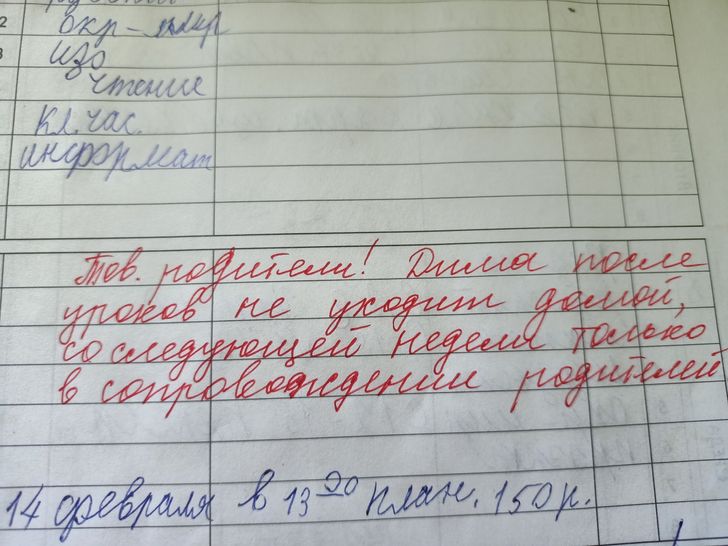 окр-мир
изо
чтение
кл. час.
информат
Тов. родители! Дима после
уроков не уходит домой,
со следующей недели только
в сопровождении родителей
14 февраля в 13 00 план. 150 р.